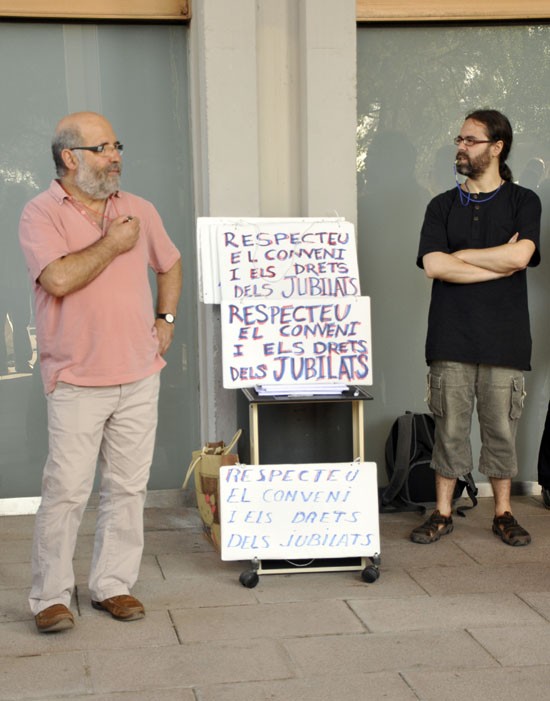 RESPECTEU
EL CONVENI
I ELS DRETS
DELS JUBILATS
RESPECTEU
EL CONVENI
I ELS DRETS
DELS JUBILATS
RESPECTEU
EL CONVENI
I ELS DRETS
DELS JUBILATS